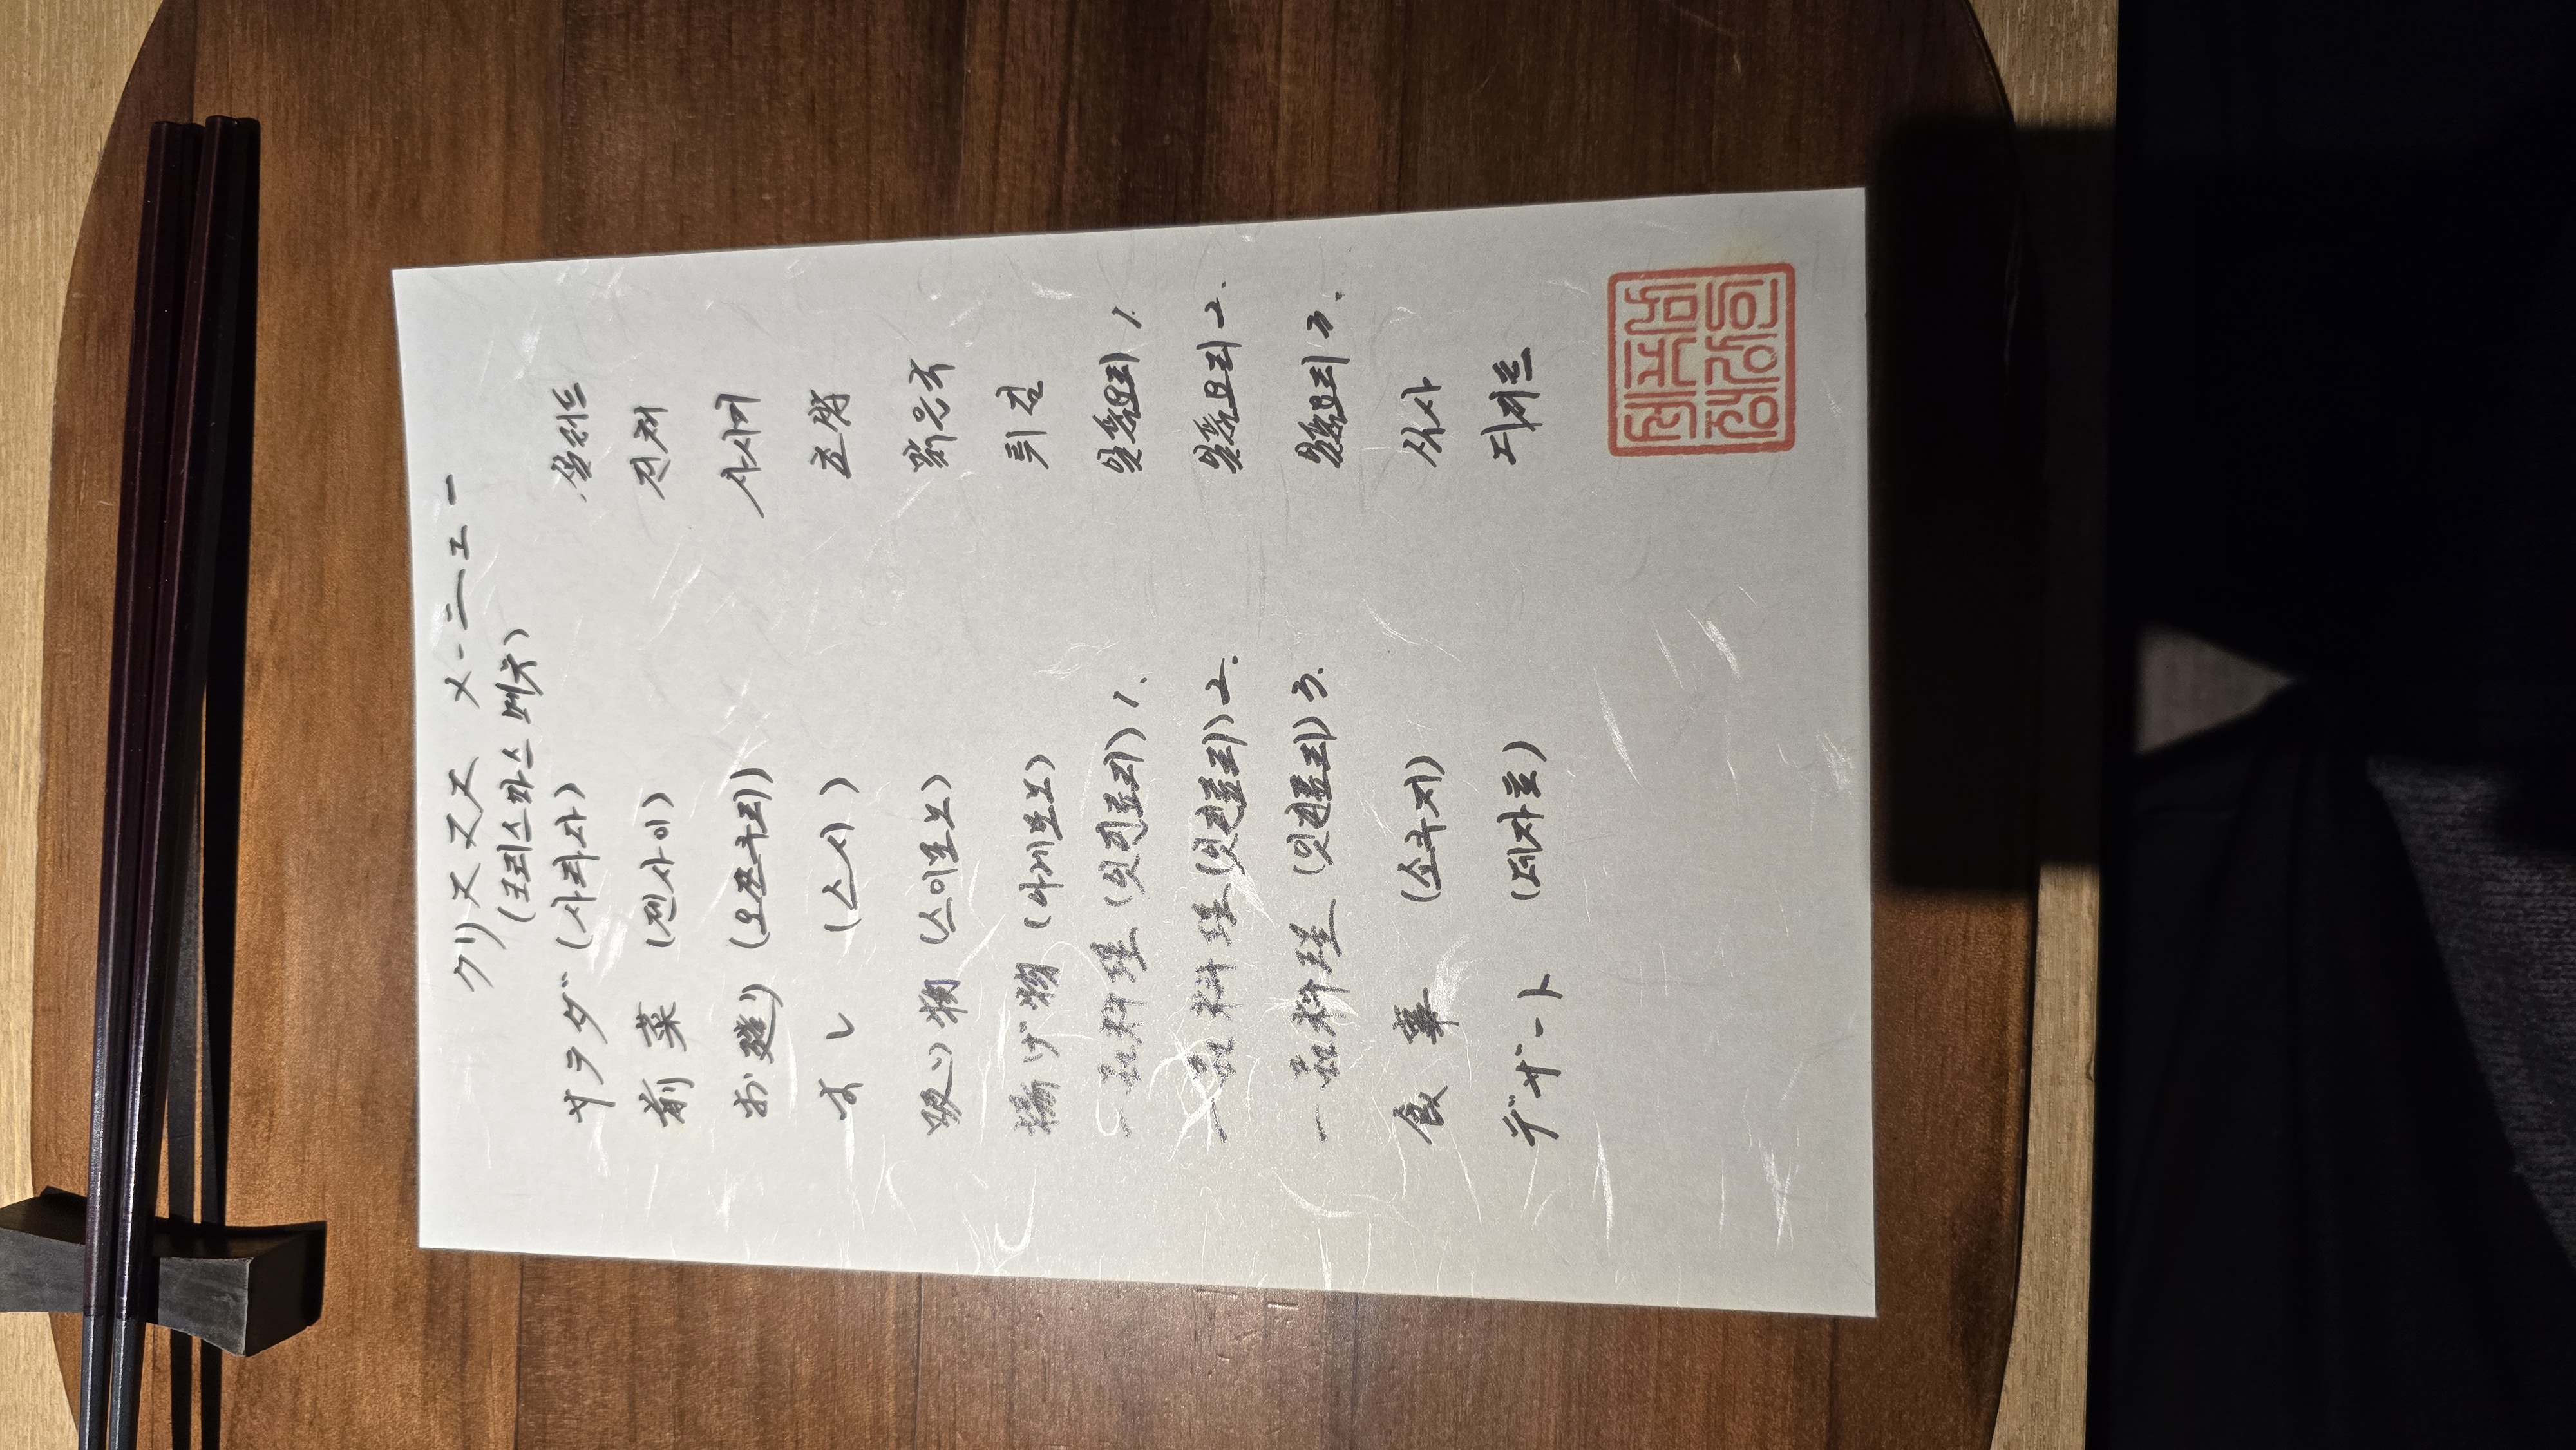 クリスススメーニュー
(크리스마스 메뉴)
サラダ (사라자) 샐러드
前菜 (젠사이) 전채
お造り (오쯔쿠리) 사시미
すし (스시) 초밥
吸い物 (스이모노) 맑은국
揚げ物 (아게모노) 튀김
一品料理 (잇핀료리) 1. 일품요리 1.
一品料理 (잇핀료리) 2. 일품요리 2.
一品料理 (잇핀료리) 3. 일품요리 3.
食事 (쇼쿠지) 식사
デザート (데자토) 디저트